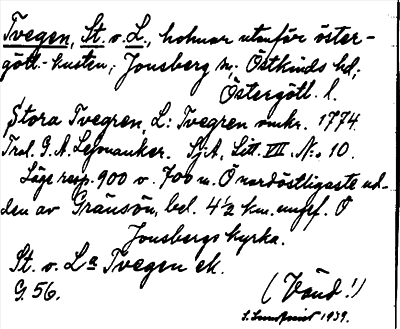 Tvegen, St. o. L., holmar utanför öster-
götl.-kusten; Jonsberg sn; Östkinds hd;
Östergötl. l.
Stora Tvegren, L: Tvegren omkr. 1774
Trol. G. A. Lejonanker. SjA, Litt. VII. No. 10.
Läge resp. 900 o. 700 m. Ö nordöstligaste ud-
den av Gränsön, bel. 4½ km. ungef. Ö
Jonsbergs kyrka.
St. o. La Tvegen ek.
G. 56.
(Vänd!)
1939.